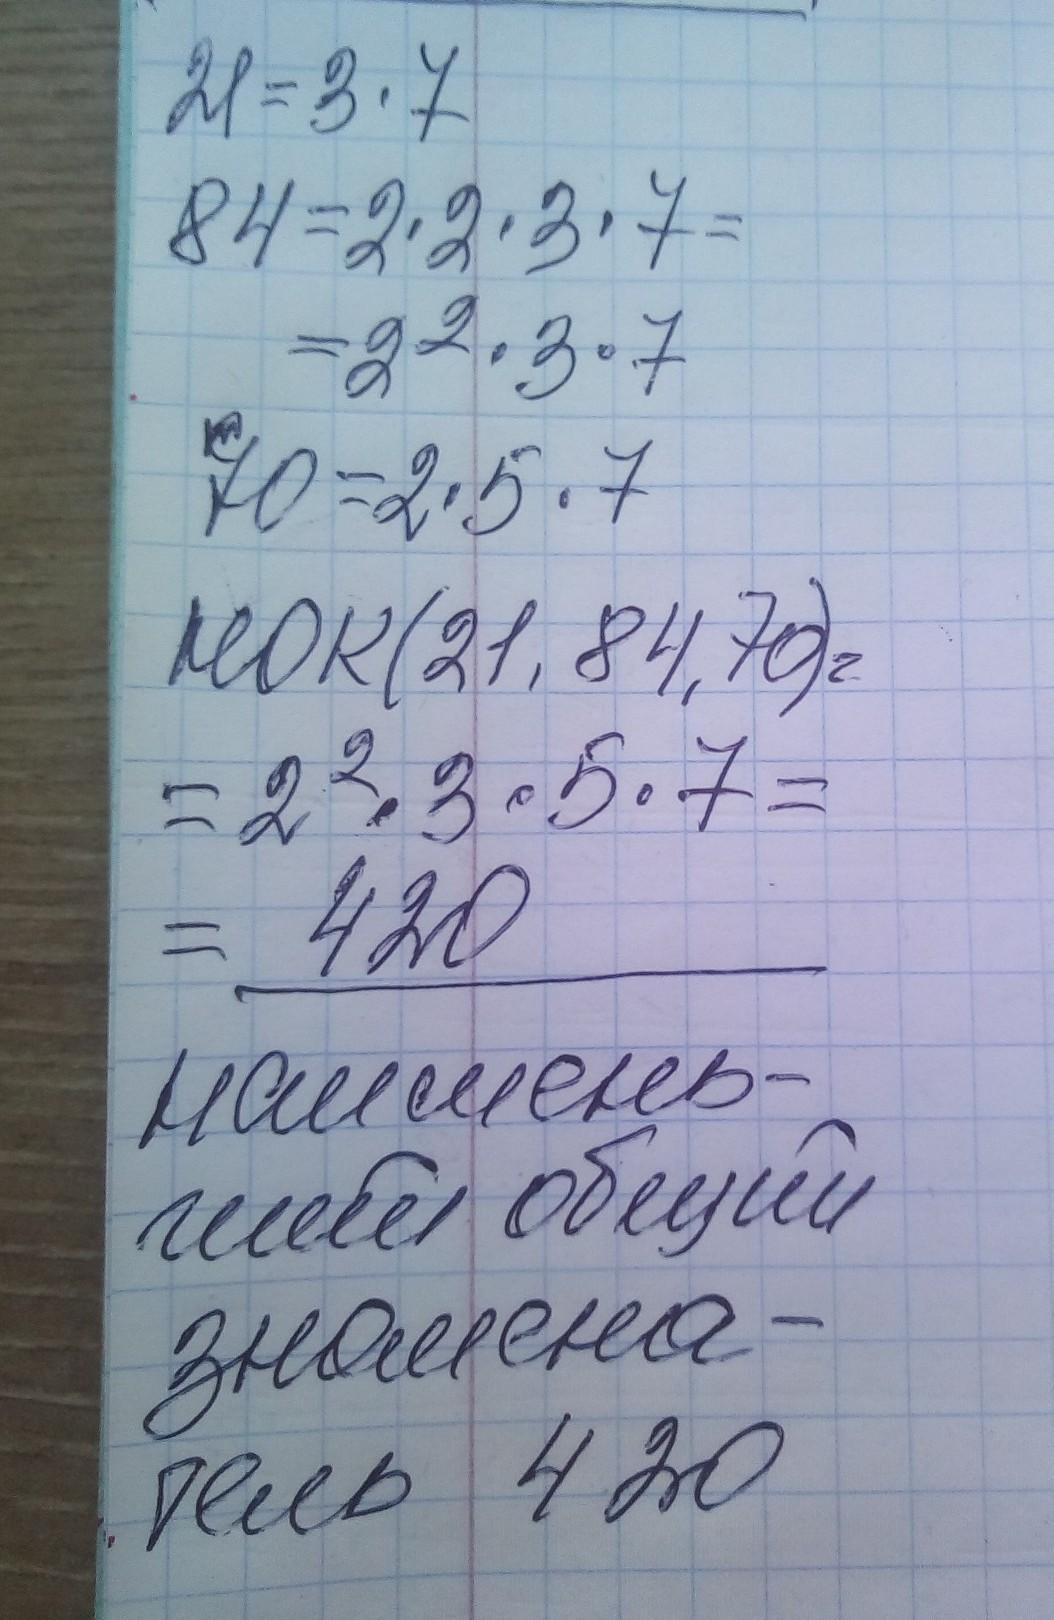 21=3·7
84=2·2·3·7=
=2²·3·7
70=2·5·7
НОК(21,84,70)=
=2²·3·5·7=
= 420
наимень-
ший общий
знамена-
тель 420